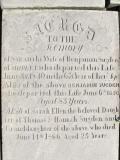 SACRED
TO THE
Memory
of Susan the Wife of Benjamin Sugden
of who departed this Life
June 10 in the 68 Year of her Age
Also of the above BENJAMIN SUGDEN
who departed this Life June 6th
Aged 83 Years.
Also of Sarah Ellen the beloved Daughter
of Thomas & Hannah Sugden and
Granddaughter of the above who died
June 14th 1866 Aged 23 Years.